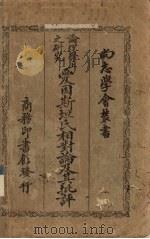 尚志學會叢書
之研究
愛因斯坦氏相對論及其批評
商務印書館發行